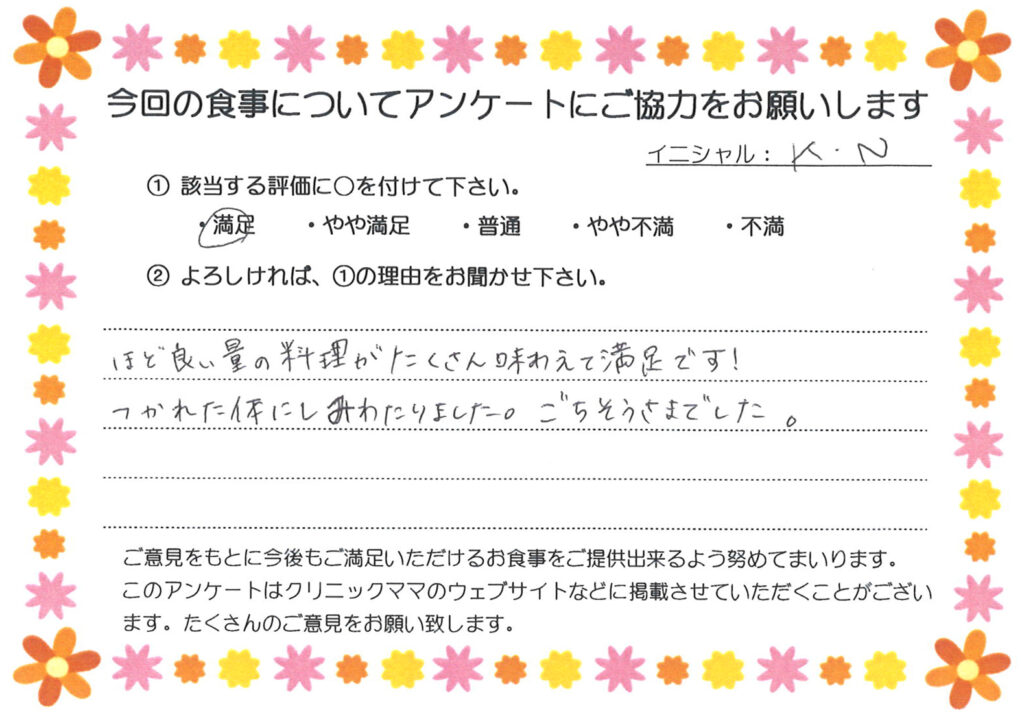 今回の食事についてアンケートにご協力をお願いします
イニシャル： K・N
① 該当する評価に〇を付けて下さい。
・満足 ・やや満足 ・普通 ・やや不満 ・不満
② よろしければ、①の理由をお聞かせ下さい。
ほど良い量の料理がたくさん味わえて満足です!
つかれた体にしみわたりました。ごちそうさまでした。
ご意見をもとに今後もご満足いただけるお食事をご提供出来るよう努めてまいります。
このアンケートはクリニックママのウェブサイトなどに掲載させていただくことがござい
ます。たくさんのご意見をお願い致します。